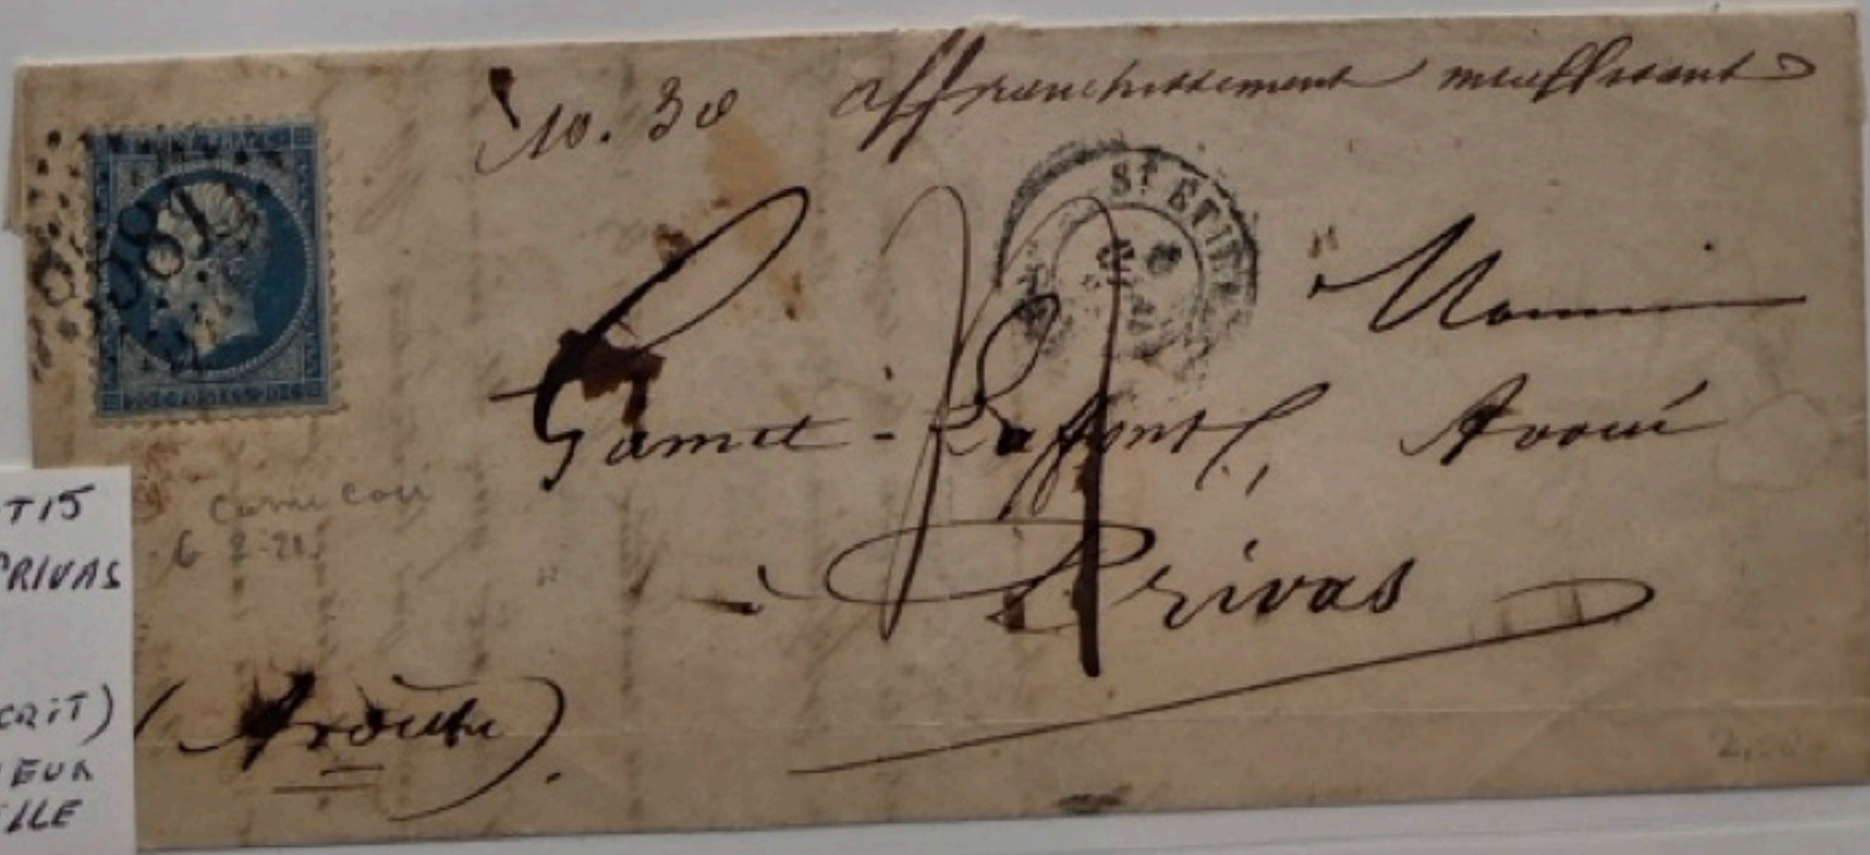 10. 30 affranchissement insuffisant
ST ETIE
3819
20 C POSTES 20 C
Monsieur
Gamet - Laffont, Avoué
à Privas
(Ardèche).
TIS
PRIVAS
CRIT)
EUR
ILLE